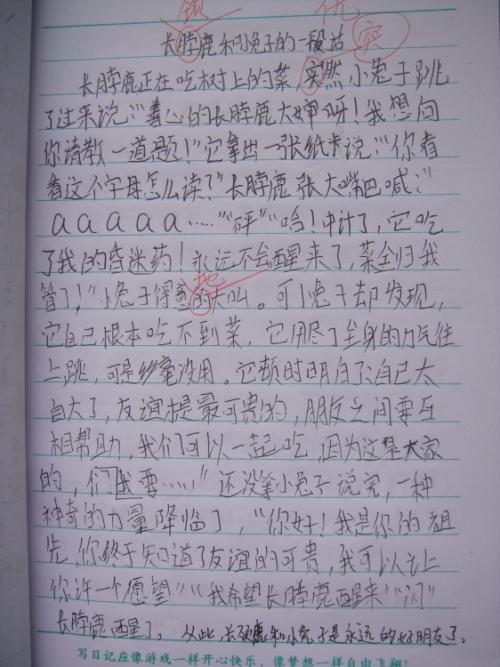 颈 优
长脖鹿和小兔子的一段话 突
长脖鹿正在吃树上的菜,突然小兔子跳
了过来说:“善心的长脖鹿大婶呀!我想向
你请教一道题!”它拿出一张纸来说:“你看
看这个字母怎么读?”长脖鹿张大嘴巴喊:“
a a a a a ……”“砰”“哈!中计了,它吃
了我的昏迷药!永远不会醒来了,菜全归我
管了!”小兔子得意的大叫。可小兔子却发现,
它自己根本吃不到菜,它用尽了全身的力气往
上跳,可是丝毫没用。它顿时明白了:自己太
自大了,友谊才是最可贵的,朋友之间要互
相帮助,我们可以一起吃,因为这是大家
的,们我要……”还没等小兔子说完,一种
神奇的力量降临了,“你好!我是你的祖
先,你终于知道了友谊的可贵,我可以让
你许一个愿望”“我希望长脖鹿醒来”“闪”
长脖鹿醒了。从此,长颈鹿和小兔子是永远的好朋友了。
写日记应像游戏一样开心快乐,像梦想一样自由飞翔!